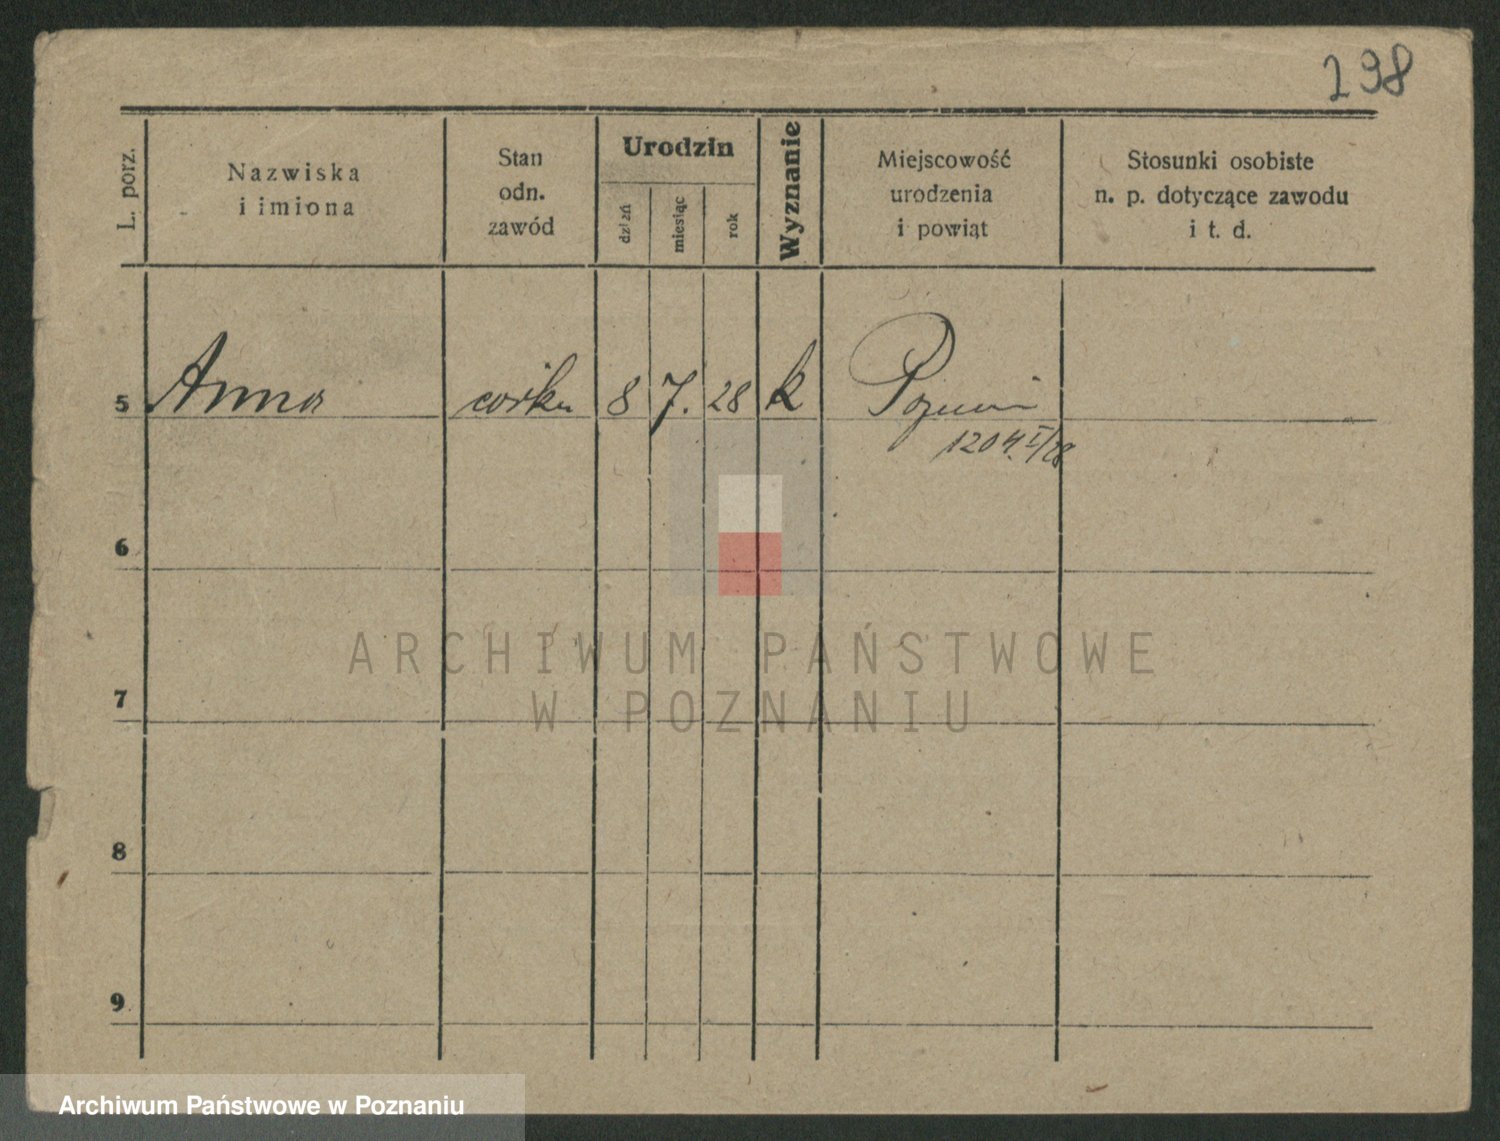 298
L. porz.
Nazwiska
i imiona
Stan
odn.
zawód
Urodzin
dzień
miesiąc
rok
Wyznanie
Miejscowość
urodzenia
i powiąt
Stosunki osobiste
n. p. dotyczące zawodu
i t. d.
5 Anna córka 8 7. 28 k Poznań
1204 I/28
6
ARCHIWUM PAŃSTWOWE
W POZNANIU
7
8
9
Archiwum Państwowe w Poznaniu